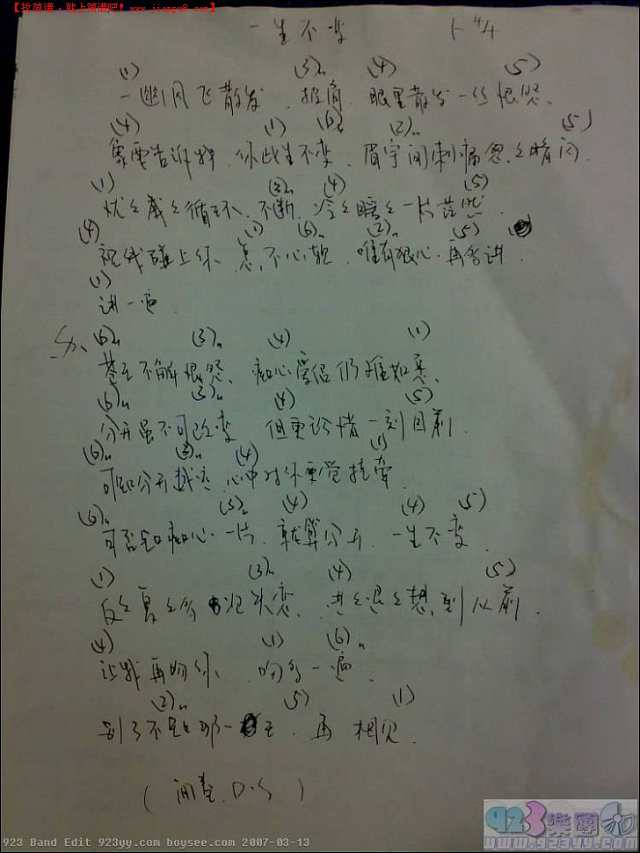 【找简谱，就上简谱吧! www.jianpu8.com】
一生不变 4/4
(1) (3)m (4) (5)
一幽风飞散发 披肩 眼里散发一丝恨怨
(4) (1) (6)m (2)m (5)
像要告诉我 你此生不变 眉宇间刺痛忽之暗闪
(1) (3)m (4) (5)
忧之戚之循环 不断 冷之暖之一片茫然
(4) (1) (6)m (2)m (5)
视线碰上你 怎不心软 唯有狠心再含讲
(1)
讲一遍
(6)m (3)m (4) (1)
苦不解恨怨 痴心爱侣仍难如愿
(6)m (3)m (4) (5)
分开虽不可改变 但更珍惜一刻目前
(6)m (3)m (4) (1)
可知分开越远 心中对你更觉挂牵
(6)m (3)m (4) (4) (5)
可否知痴心一片 就算分开 一生不变
(1) (3)m (4) (5)
反之复之失恋 进之退之想到从前
(4) (1) (6)m
让我再吻你 吻多一遍
(2)m (5) (1)
别了不知那一天 再相见
(间奏 D.S)
923 Band Edit 923yy.com boysee.com 2007-03-13
923樂團
www.923yy.com